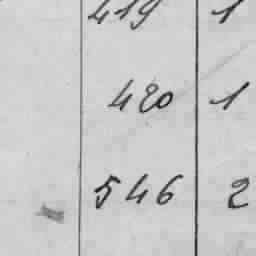 419 1
420 1
546 2